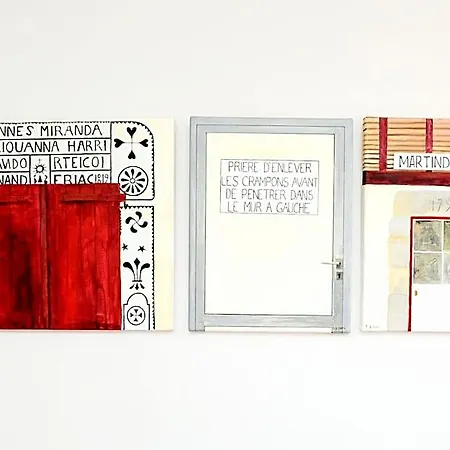 NNES MIRANDA
IOUANNA HARRI
AUDO RTEICOI
NAND ERIAC 1819
PRIERE D'ENLEVER
LES CRAMPONS AVANT
DE PENETRER DANS
LE MUR A GAUCHE
MARTIND